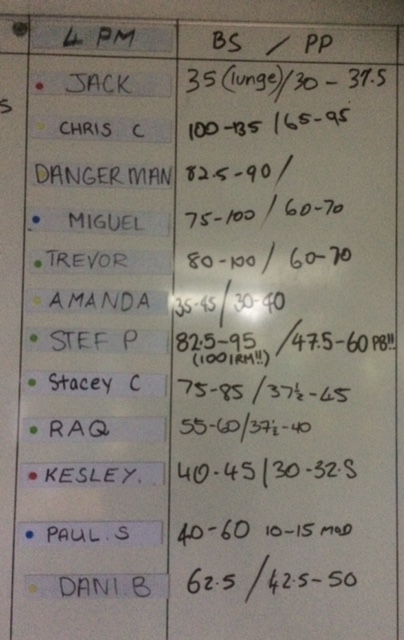 4 PM BS / PP
JACK 35 (lunge)/30 - 37.5
CHRIS C 100-135 /65-95
DANGERMAN 82.5-90 /
MIGUEL 75-100 / 60-70
TREVOR 80-100 / 60-70
AMANDA 35-45 / 30-40
STEF P 82.5-95 /47.5-60 PB!!
(100 1RM!!)
Stacey C 75-85 /37½-45
RAQ 55-60/37½-40
KESLEY. 40-45 / 30-32.5
PAUL.S 40-60 10-15 MOD
DANI.B 62.5 / 42.5-50